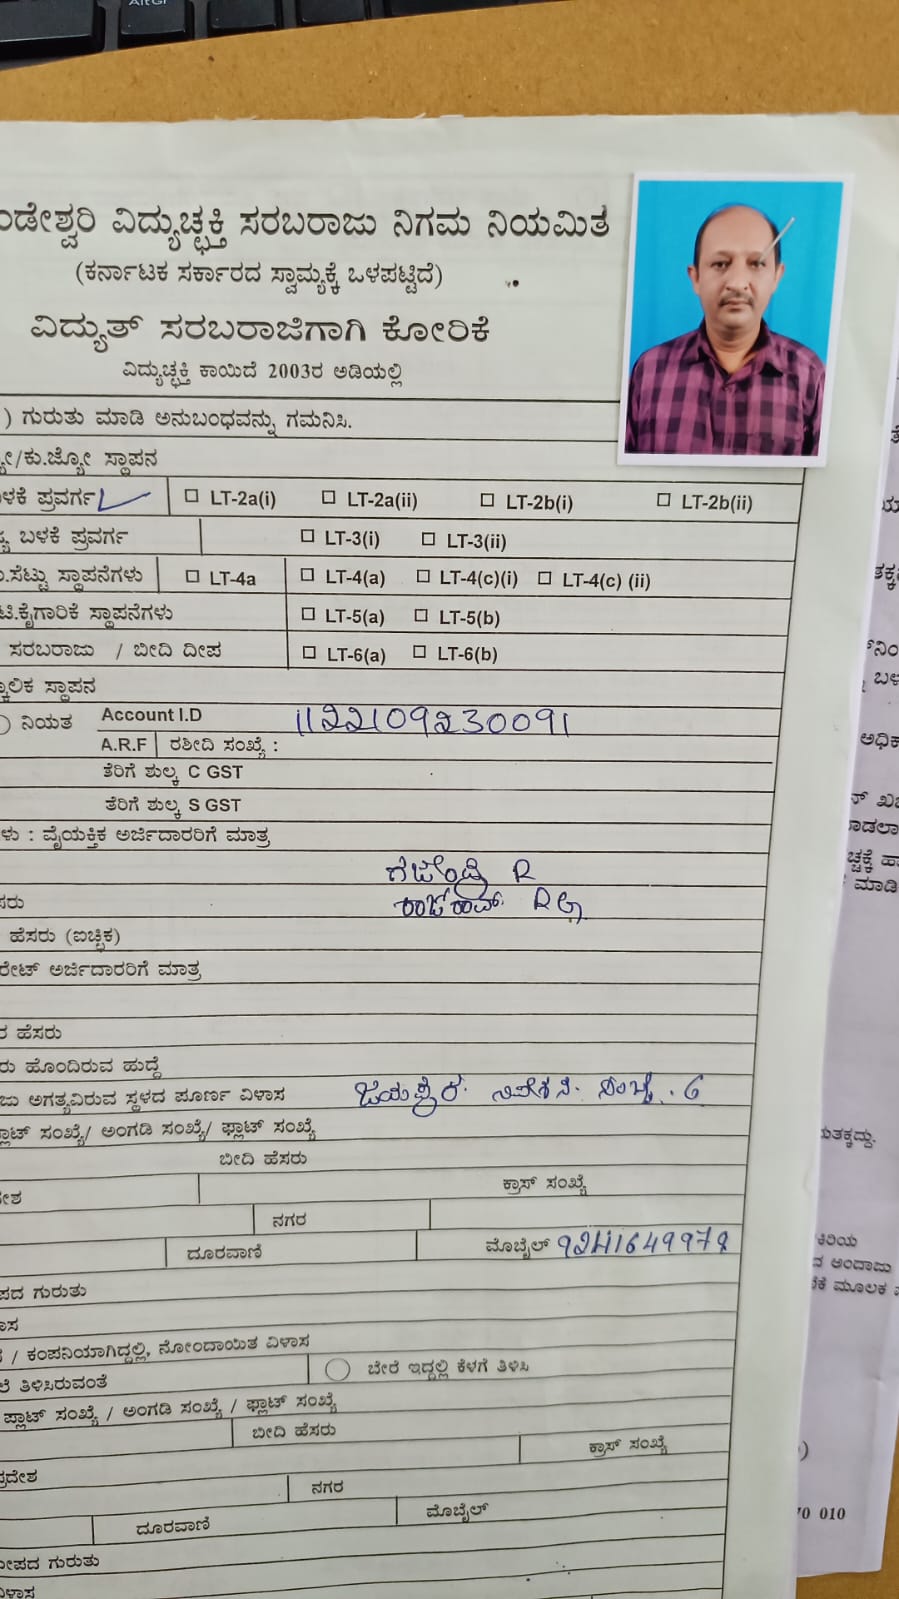 AltGr
ಂಡೇಶ್ವರಿ ವಿದ್ಯುಚ್ಛಕ್ತಿ ಸರಬರಾಜು ನಿಗಮ ನಿಯಮಿತ
(ಕರ್ನಾಟಕ ಸರ್ಕಾರದ ಸ್ವಾಮ್ಯಕ್ಕೆ ಒಳಪಟ್ಟಿದೆ)
ವಿದ್ಯುತ್ ಸರಬರಾಜಿಗಾಗಿ ಕೋರಿಕೆ
ವಿದ್ಯುಚ್ಛಕ್ತಿ ಕಾಯಿದೆ 2003ರ ಅಡಿಯಲ್ಲಿ
) ಗುರುತು ಮಾಡಿ ಅನುಬಂಧವನ್ನು ಗಮನಿಸಿ.
/ಕು.ಜ್ಯೋ ಸ್ಥಾಪನ
ಳಕೆ ಪ್ರವರ್ಗ LT-2a(i) LT-2a(ii) LT-2b(i) LT-2b(ii)
ಬಳಕೆ ಪ್ರವರ್ಗ LT-3(i) LT-3(ii)
.ಸೆಟ್ಟು ಸ್ಥಾಪನೆಗಳು LT-4a LT-4(a) LT-4(c)(i) LT-4(c) (ii)
ಟಿ.ಕೈಗಾರಿಕೆ ಸ್ಥಾಪನೆಗಳು LT-5(a) LT-5(b)
ಸರಬರಾಜು / ಬೀದಿ ದೀಪ LT-6(a) LT-6(b)
ಲಿಕ ಸ್ಥಾಪನ
ನಿಯತ Account I.D 1122109230091
A.R.F ರಶೀದಿ ಸಂಖ್ಯೆ :
ತೆರಿಗೆ ಶುಲ್ಕ C GST
ತೆರಿಗೆ ಶುಲ್ಕ S GST
ಳು : ವೈಯಕ್ತಿಕ ಅರ್ಜಿದಾರರಿಗೆ ಮಾತ್ರ
ಗಜೇಂದ್ರ R
ಸರು
ಹೆಸರು (ಐಚ್ಛಿಕ)
ರೇಟ್ ಅರ್ಜಿದಾರರಿಗೆ ಮಾತ್ರ
ರ ಹೆಸರು
ರು ಹೊಂದಿರುವ ಹುದ್ದೆ
ಜು ಅಗತ್ಯವಿರುವ ಸ್ಥಳದ ಪೂರ್ಣ ವಿಳಾಸ
ಪ್ಲಾಟ್ ಸಂಖ್ಯೆ/ ಅಂಗಡಿ ಸಂಖ್ಯೆ/ ಫ್ಲಾಟ್ ಸಂಖ್ಯೆ
ಬೀದಿ ಹೆಸರು
ದೇಶ ಕ್ರಾಸ್ ಸಂಖ್ಯೆ
ನಗರ
ದೂರವಾಣಿ ಮೊಬೈಲ್ 9241649979
ಪದ ಗುರುತು
ಾಸ
/ ಕಂಪನಿಯಾಗಿದ್ದಲ್ಲಿ, ನೋಂದಾಯಿತ ವಿಳಾಸ
ತಿಳಿಸಿರುವಂತೆ ಬೇರೆ ಇದ್ದಲ್ಲಿ ಕೆಳಗೆ ತಿಳಿಸಿ
ಪ್ಲಾಟ್ ಸಂಖ್ಯೆ / ಅಂಗಡಿ ಸಂಖ್ಯೆ / ಫ್ಲಾಟ್ ಸಂಖ್ಯೆ
ಬೀದಿ ಹೆಸರು
ಪ್ರದೇಶ ಕ್ರಾಸ್ ಸಂಖ್ಯೆ
ನಗರ
ದೂರವಾಣಿ ಮೊಬೈಲ್
ಪದ ಗುರುತು
ವಿಳಾಸ
ಅಧಿಕ
ಮಾಡಿ
ಕಿರಿಯ
ಅಂದಾಜು
ಮೂಲಕ
70 010